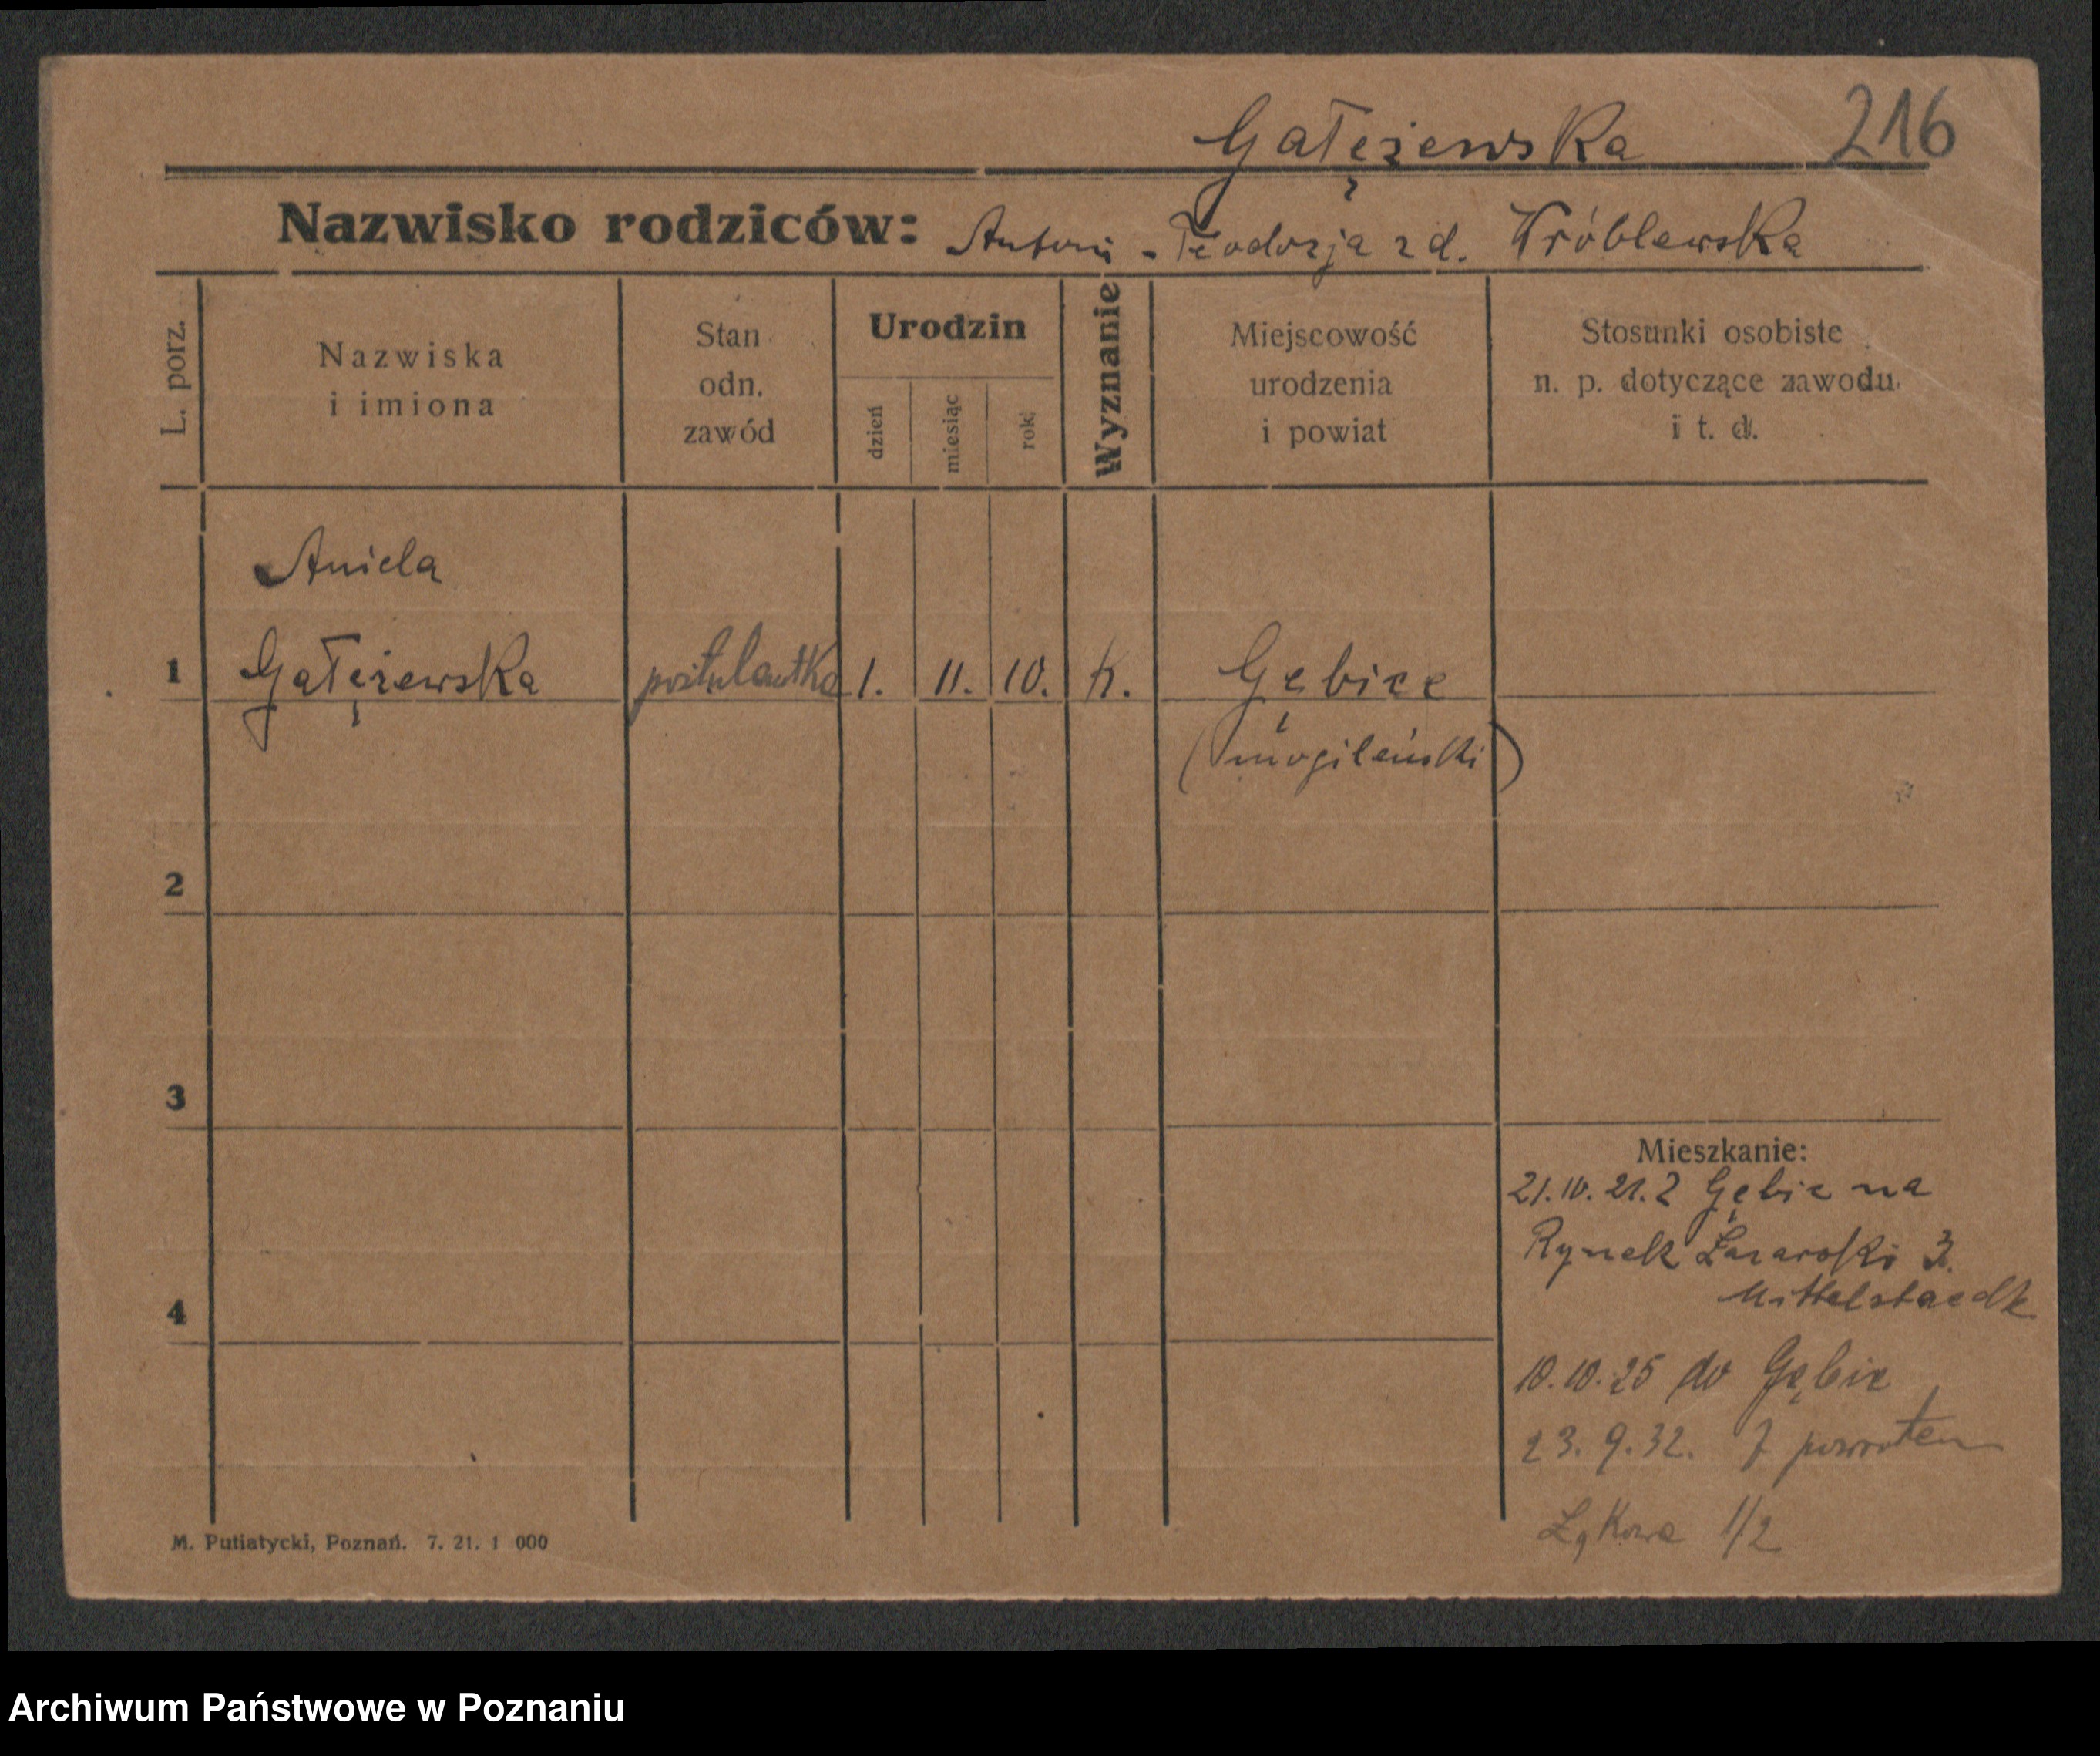 Gałężewska 216
Nazwisko rodziców: Antoni - Teodozja zd. Wróblewska
L. porz.
Nazwiska
i imiona
Stan
odn.
zawód
Urodzin
dzień
miesiąc
rok
Wyznanie
Miejscowość
urodzenia
i powiat
Stosunki osobiste
n. p. dotyczące zawodu
i t. d.
Aniela
1 Gałężewska postulantka 1. 11. 10. k. Gębice
(mogileński)
2
3
4
Mieszkanie:
21.10.21. z Gębic na
Rynek Łazarski 3.
Mittelstaedt
10.10.25 do Gębic
23.9.32. Z powrotem
Łąkowa 1/2
M. Putiatycki, Poznań. 7. 21. 1 000
Archiwum Państwowe w Poznaniu